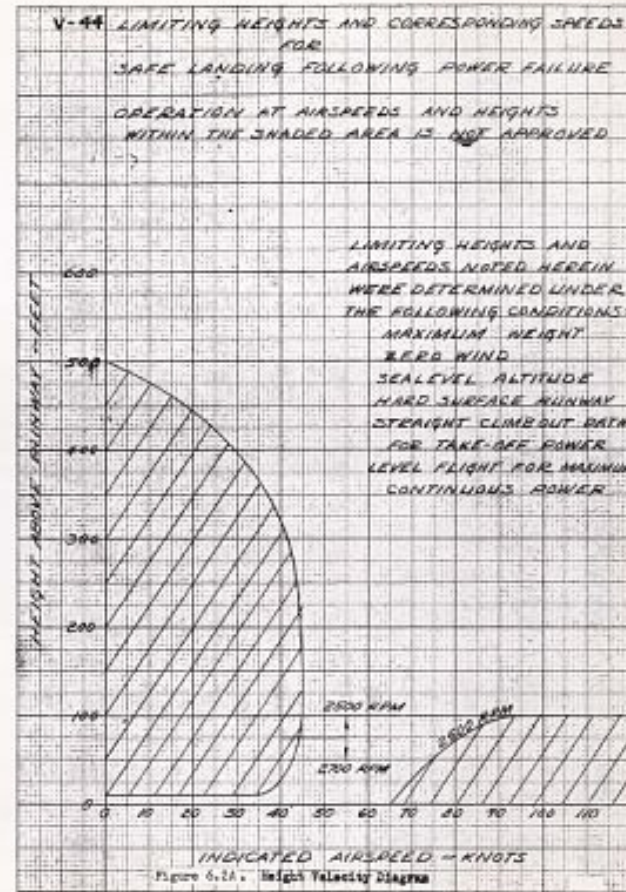 V-44 LIMITING HEIGHTS AND CORRESPONDING SPEEDS
FOR
SAFE LANDING FOLLOWING POWER FAILURE
OPERATION AT AIRSPEEDS AND HEIGHTS
WITHIN THE SHADED AREA IS NOT APPROVED
LIMITING HEIGHTS AND
AIRSPEEDS NOTED HEREIN
WERE DETERMINED UNDER
THE FOLLOWING CONDITIONS:
MAXIMUM WEIGHT
ZERO WIND
SEALEVEL ALTITUDE
HARD SURFACE RUNWAY
STRAIGHT CLIMBOUT PATH
FOR TAKE-OFF POWER
LEVEL FLIGHT FOR MAXIMUM
CONTINUOUS POWER
HEIGHT ABOVE RUNWAY - FEET
600
500
400
300
200
100
0
2500 RPM
2700 RPM
2500 RPM
0 10 20 30 40 50 60 70 80 90 100 110
INDICATED AIRSPEED - KNOTS
Figure 6.2A. Height Velocity Diagram